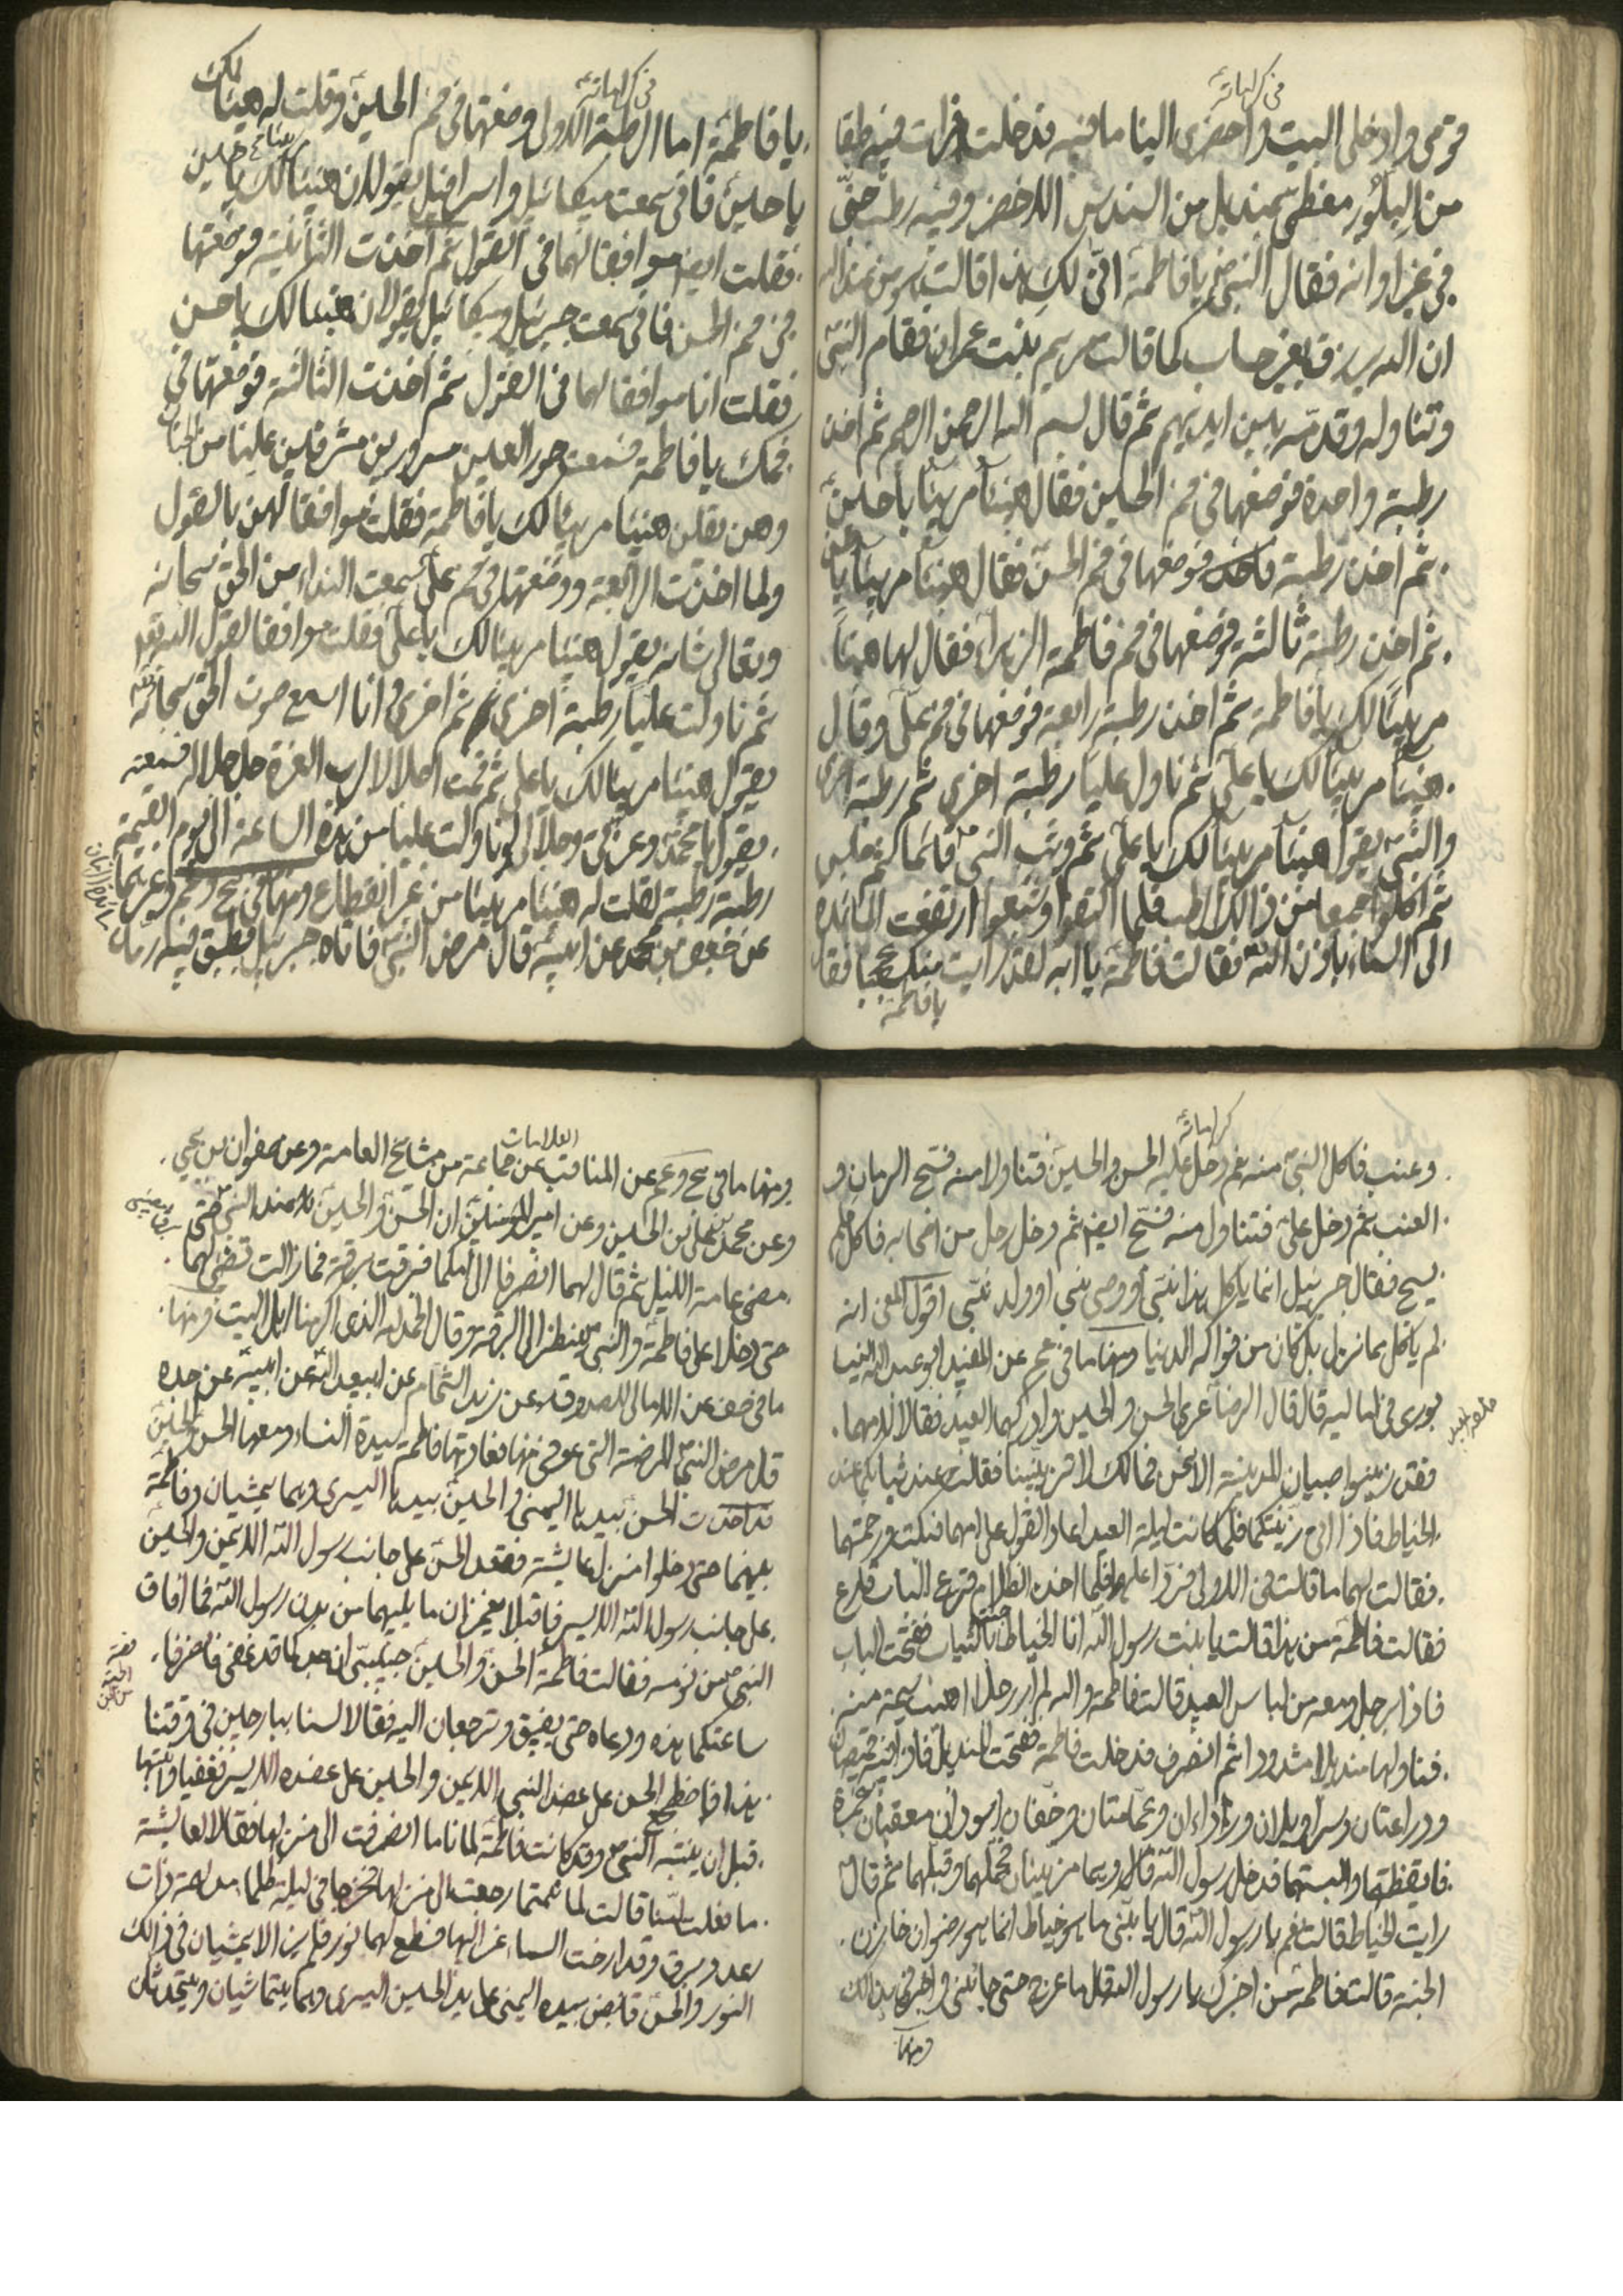 في كراماته
قومي وادخلي البيت واحضري الينا ما فيه فدخلت فرات فيه طبقا
من البلور مغطى بمنديل من السندس الاخضر وفيه رطب جنى
في غير اوانه فقال النبي ص يا فاطمة انى لك هذا قالت هو من عند الله
ان الله يرزق بغير حساب كما قالت مريم بنت عمران فقام النبي
وتناوله وقدمه بين ايديهم ثم قال بسم الله الرحمن الرحيم ثم اخذ
رطبة واحدة فوضعها في فم الحسين فقال هنيئا مريئا يا حسين
ثم اخذ رطبة فوضعها في فم الحسن فقال هنيئا مريئا يا حسن
ثم اخذ رطبة ثالثة فوضعها في فم فاطمة الزهراء فقال لها هنيئا
مريئا لك يا فاطمة ثم اخذ رطبة رابعة فوضعها في فم علي وقال
هنيئا مريئا لك يا علي ثم ناول عليا رطبة اخرى ثم رطبة اخرى
والنبي يقول هنيئا مريئا لك يا علي ثم وثب النبي قائما ثم جلس
ثم اكلوا جميعا من ذلك الرطب فلما اكتفوا وشبعوا ارتفعت المائدة
الى السماء باذن الله فقالت فاطمة يا ابه لقد رايت منك عجبا فقال
يا فاطمة
في كراماته
يا فاطمة اما الرطبة الاولى وضعتها في فم الحسين وقلت له هنيئا لك
يا حسين فاني سمعت ميكائيل واسرافيل يقولان هنيئا لك يا حسين
فقلت ايضا موافقا لهما في القول ثم اخذت الثانية فوضعتها
في فم الحسن فاني سمعت جبرئيل وميكائيل يقولان هنيئا لك يا حسن
فقلت انا موافقا لهما في القول ثم اخذت الثالثة فوضعتها في
فمك يا فاطمة فسمعت حور العين مسرورين مشرفين علينا من الجنان
وهن يقلن هنيئا مريئا لك يا فاطمة فقلت موافقا لهن بالقول
ولما اخذت الرابعة ووضعتها في فم علي سمعت النداء من الحق سبحانه
وتعالى شانه يقول هنيئا مريئا لك يا علي فقلت موافقا لقول الله تعالى
ثم ناولت عليا رطبة اخرى ثم اخرى وانا اسمع صوت الحق سبحانه
يقول هنيئا مريئا لك يا علي ثم قمت اجلالا لرب العزة جل جلاله فسمعته
يقول يا محمد وعزتي وجلالي لو ناولت عليا من هذه الساعة الى يوم القيمة
رطبة رطبة لقلت له هنيئا مريئا من غير انقطاع ومنها في
عن جعفر بن محمد عن ابيه قال مرض النبي فاتاه جبرئيل بطبق فيه رمان
كراماته
وعنب فاكل النبي منه ثم دخل عليه الحسن والحسين فتناولا منه فسبح الرمان و
العنب ثم دخل علي فتناول منه فسبح ايضا ثم دخل رجل من اصحابه فاكل فلم
يسبح فقال جبرئيل انما ياكل هذا نبي او وصي نبي او ولد نبي اقول المعنى انه
لم ياكل مما نزل بل كان من فواكه الدنيا ومنها ما في عن المفيد ابو عبد الله النيسا
بوري في اماليه قال قال الرضا عرى الحسن والحسين وادركهما العيد فقالا لامهما
قد زينوا صبيان المدينة الا نحن فمالك لا تزينينا فقالت عند ثيابكما عند
الخياط فاذا اتى زينتكما فلما كانت ليلة العيد اعادا القول على امهما فبكت ورحمتهما
فقالت لهما ما قالت في الاولى فردا عليها فلما اخذ الظلام قرع الباب قارع
فقالت فاطمة من هذا قالت يا بنت رسول الله انا الخياط جئت بالثياب ففتحت الباب
فاذا برجل ومعه من لباس العيد قالت فاطمة والله لم ار رجلا اهيب شيمة منه
فناولها منديلا مشدودا ثم انصرف فدخلت فاطمة ففتحت المنديل فاذا فيه قميصان
ودراعتان وسراويلان ورداءان وعمامتان وخفان اسودان معقبان بحمرة
فايقظتهما والبستهما فدخل رسول الله وهما مزينان فحملهما وقبلهما ثم قال
رايت الخياط قالت نعم يا رسول الله قال يا بنتي ما هو خياط انما هو رضوان خازن
الجنة قالت فاطمة فمن اخبرك يا رسول الله قال ما عرج حتى جاءني واخبرني بذلك
ومنها
العلامات
ومنها ما في عن المناقب عن جماعة من مشايخ العامة وعن صفوان بن يحيى
وعن محمد بن علي بن الحسين وعن امير المؤمنين ان الحسن والحسين كانا عند النبي حتى
مضى عامة الليل ثم قال لهما انصرفا الى امكما فبرقت برقة فما زالت تضيء لهما
حتى دخلا على فاطمة والنبي ينظر الى البرقة وقال الحمد لله الذي اكرمنا اهل البيت ومنها
ما في عن الامالي للصدوق عن زيد الشحام عن ابيعبد الله عن ابيه عن جده
قال مرض النبي المرضة التي عوفي منها فعادته فاطمة سيدة النساء ومعها الحسن والحسين
قد اخذت الحسن بيدها اليمنى والحسين بيدها اليسرى وهما يمشيان وفاطمة
بينهما حتى دخلوا منزل عايشة فقعد الحسن على جانب رسول الله الايمن والحسين
على جانب رسول الله الايسر فاقبلا يغمزان ما يليهما من بدن رسول الله فما افاق
النبي من نومه فقالت فاطمة الحسن والحسين حبيبي ان جدكما قد غفى فانصرفا
ساعتكما هذه ودعاه حتى يفيق وترجعان اليه فقالا لسنا ببارحين في وقتنا
هذا فاضطجع الحسن على عضد النبي الايمن والحسين على عضده الايسر فغفيا وانتبها
قبل ان ينتبه النبي وقد كانت فاطمة لما ناما انصرفت الى منزلها فقالا لعايشة
ما فعلت امنا قالت لما نمتما رجعت الى منزلها فخرجا في ليلة ظلماء مدلهمة ذات
رعد وبرق وقد ارخت السماء عزاليها فسطع لهما نور فلم يزالا يمشيان في ذلك
النور والحسن قابض بيده اليمنى على يد الحسين اليسرى وهما يتماشيان ويتحدثان